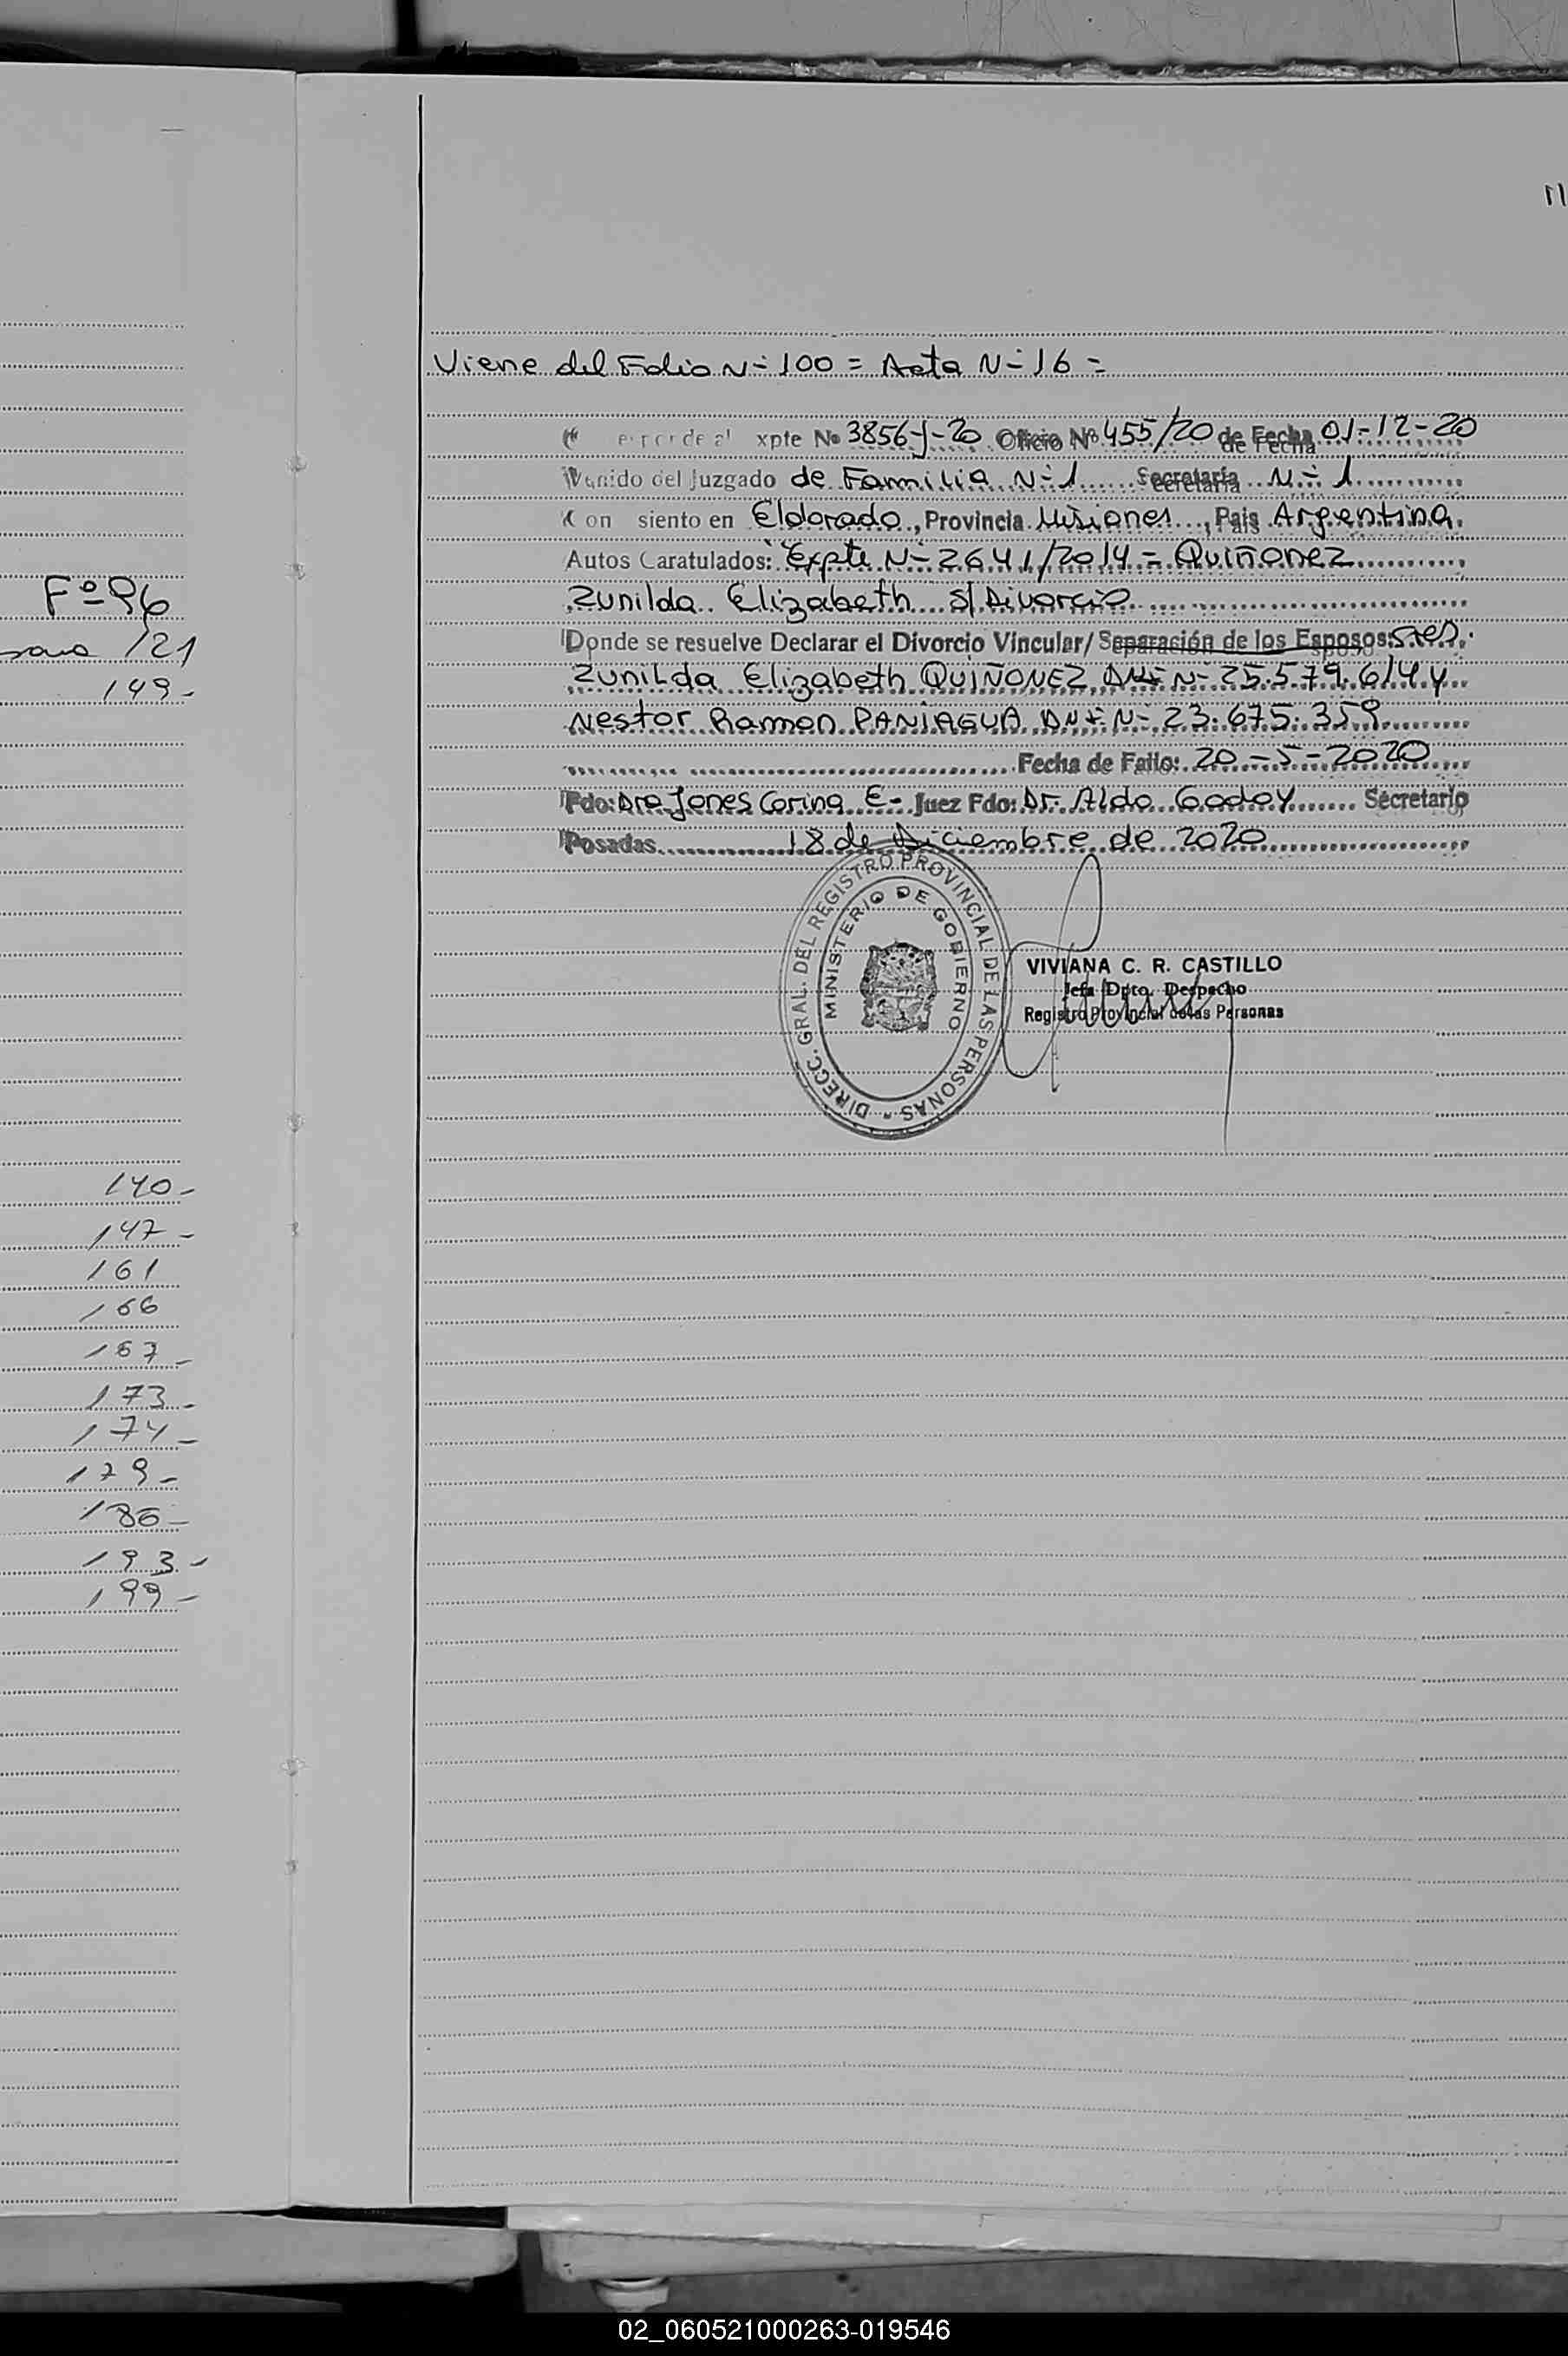 Fº 96
/21
149-
140-
147-
161
166
167-
173-
174-
179-
186-
193-
199-
11
Viene del Folio N=100= Acta N=16=
xpte Nº 3856-J-20 Oficio Nº 455/20 de Fecha 01-12-20
Venido del Juzgado de Familia N=1 Secretaría N=1
Con siento en Eldorado, Provincia Misiones, Pais Argentina.
Autos Caratulados: "Expte N=2641/2014= Quiñonez
Zunilda Elizabeth s/Divorcio
Donde se resuelve Declarar el Divorcio Vincular/ Separación de los Esposos:
Zunilda Elizabeth QUIÑONEZ DNI N=25.579.614 y
Nestor Ramon PANIAGUA DNI N=23.675.359
Fecha de Fallo: 20-5-2020
Fdo: Dra Jones Corina E- Juez Fdo: Dr. Aldo Godoy Secretario
Posadas 18 de Diciembre de 2020
DIRECC. GRAL. DEL REGISTRO PROVINCIAL DE LAS PERSONAS
MINISTERIO DE GOBIERNO
VIVIANA C. R. CASTILLO
Jefa Dpto. Despacho
Registro Provincial de las Personas
02_060521000263-019546